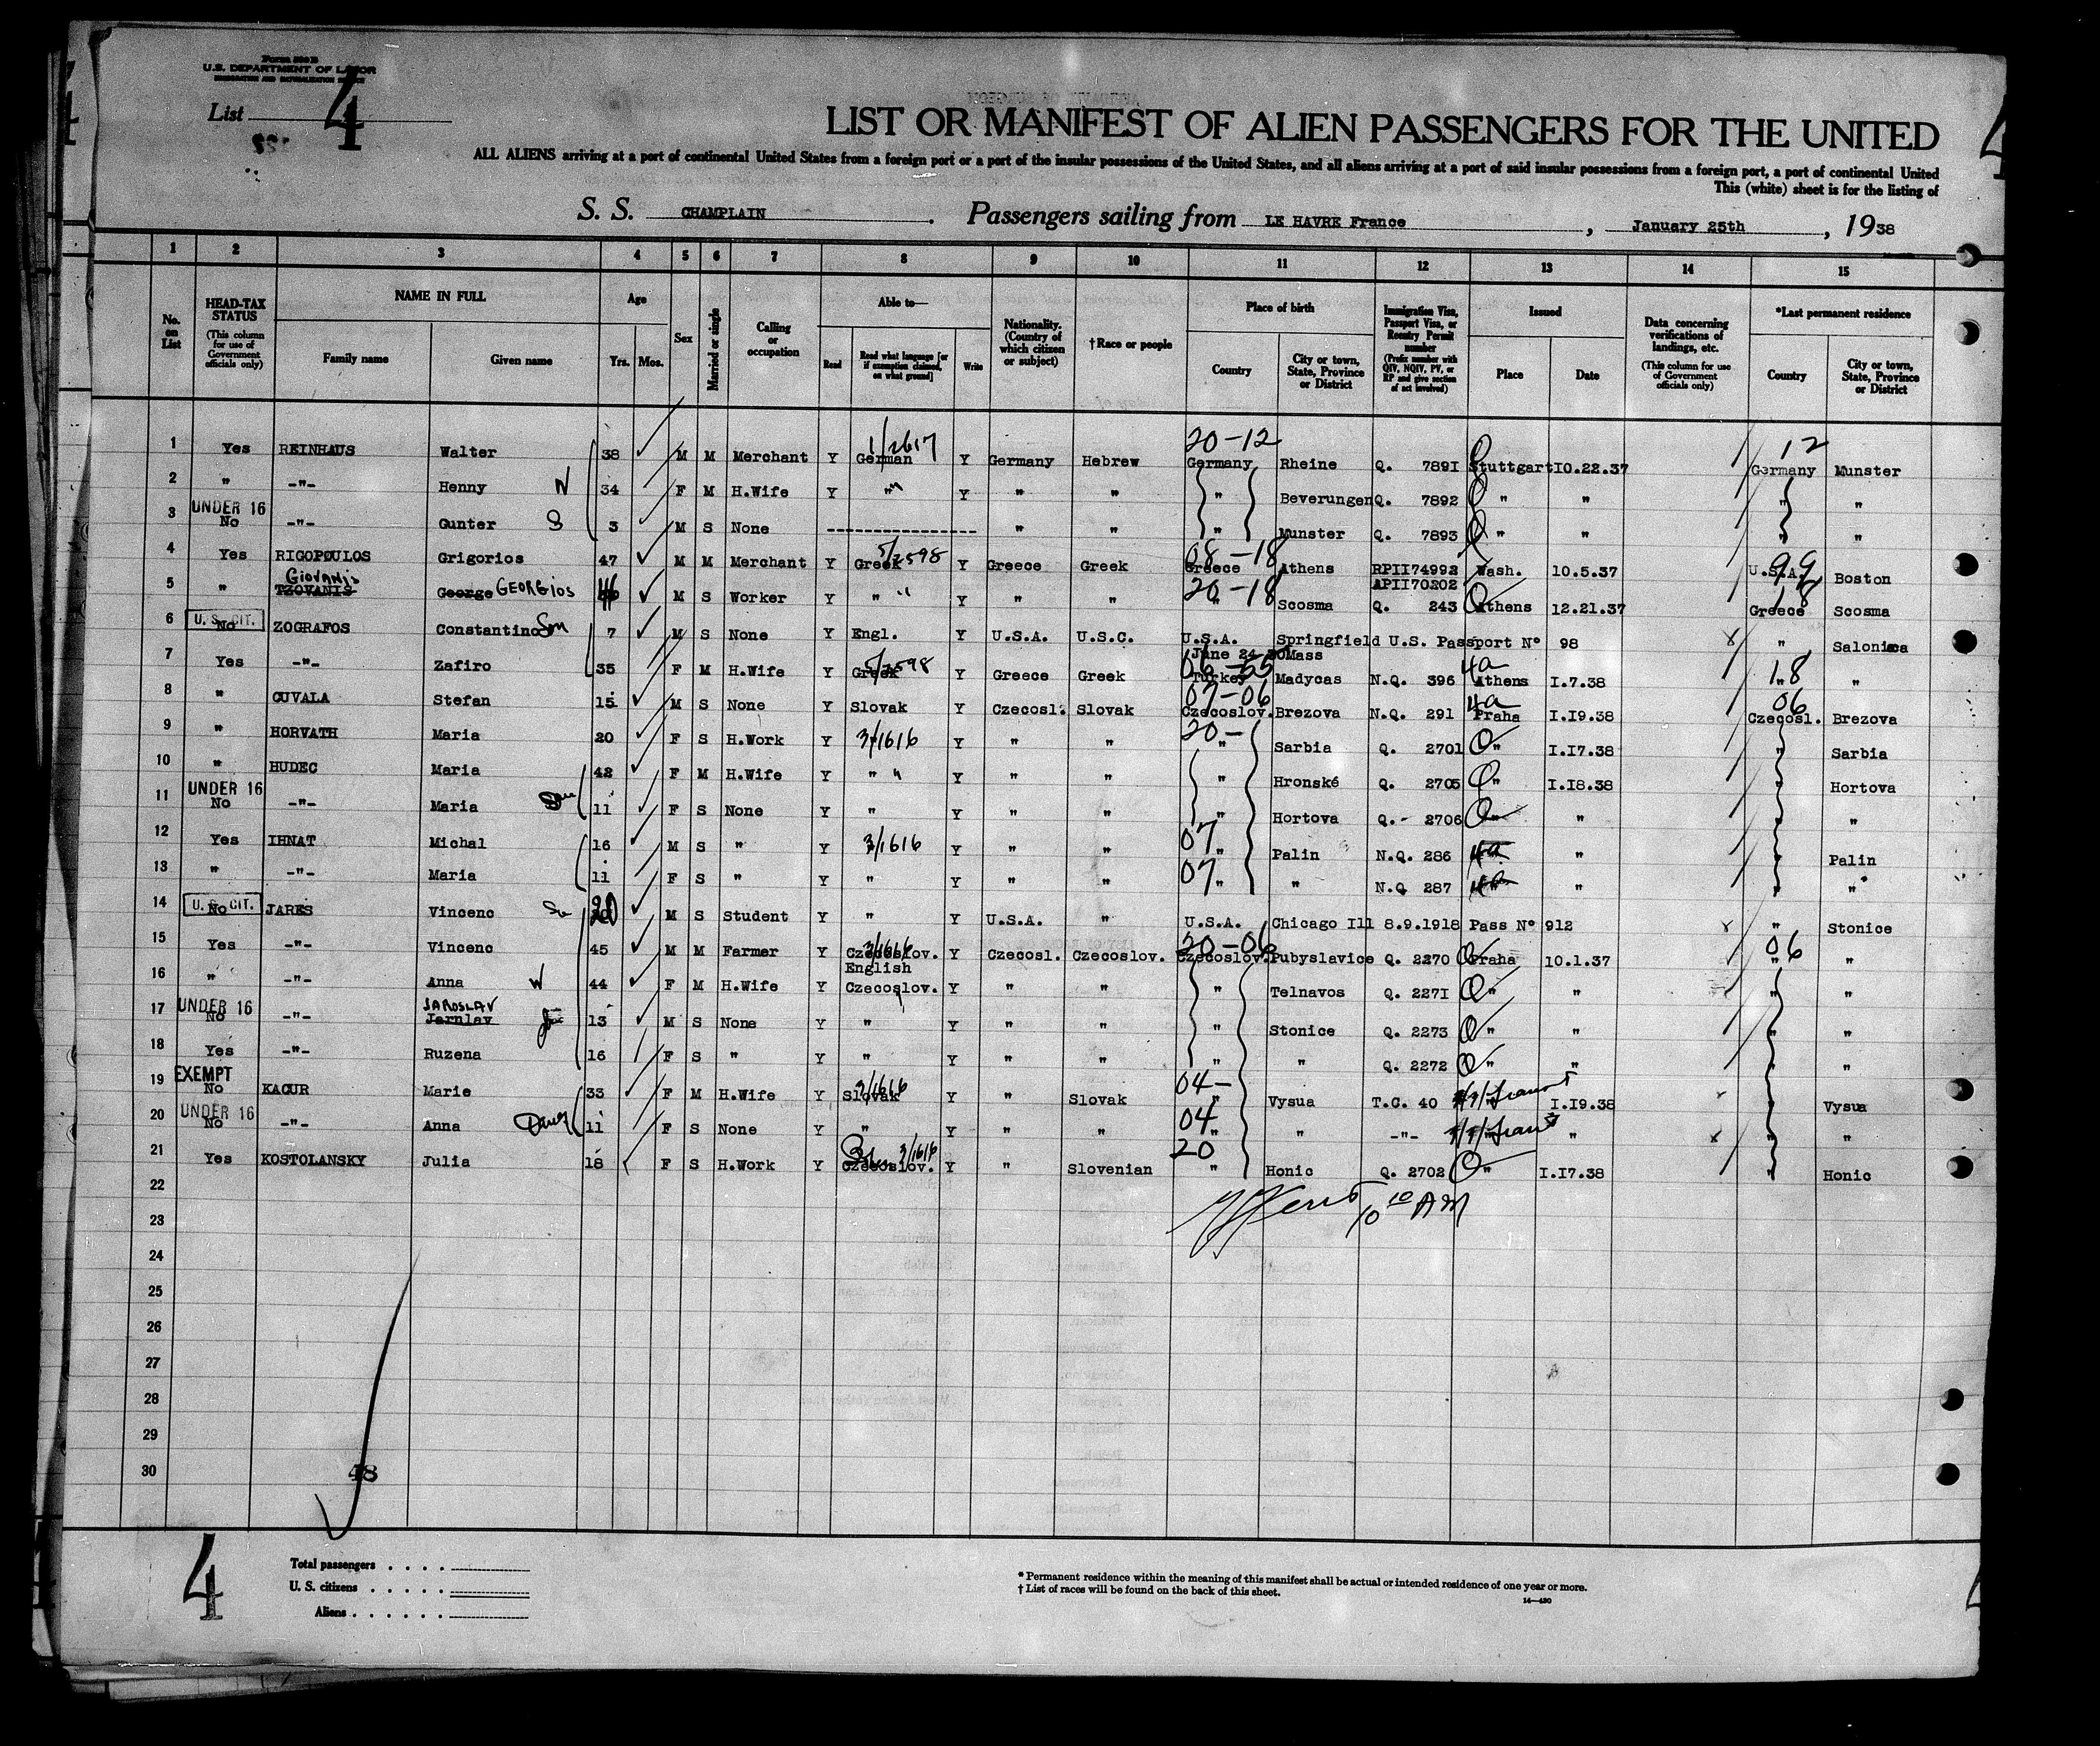 Form 500 B
U.S. DEPARTMENT OF LABOR
IMMIGRATION AND NATURALIZATION SERVICE
List 4
LIST OR MANIFEST OF ALIEN PASSENGERS FOR THE UNITED
ALL ALIENS arriving at a port of continental United States from a foreign port or a port of the insular possessions of the United States, and all aliens arriving at a port of said insular possessions from a foreign port, a port of continental United
This (white) sheet is for the listing of
S. S. CHAMPLAIN. Passengers sailing from LE HAVRE France, January 25th, 1938
1 2 3 4 5 6 7 8 9 10 11 12 13 14 15
No. on List
HEAD-TAX STATUS (This column for use of Government officials only)
NAME IN FULL
Family name Given name
Age
Yrs. Mos.
Sex
Married or single
Calling or occupation
Able to—
Read Read what language [or if exemption claimed, on what ground] Write
Nationality. (Country of which citizen or subject)
†Race or people
Place of birth
Country City or town, State, Province or District
Immigration Visa, Passport Visa, or Reentry Permit number (Prefix number with QIV, NQIV, PV, or RP and give section of act involved)
Issued
Place Date
Data concerning verifications of landings, etc. (This column for use of Government officials only)
*Last permanent residence
Country City or town, State, Province or District
1/2617 20-12 12
1 Yes REINHAUS Walter 38 M M Merchant Y German Y Germany Hebrew Germany Rheine Q. 7891 Stuttgart 10.22.37 Germany Munster
2 " -"- Henny W 34 F M H.Wife Y " Y " " " Beverungen Q. 7892 " " " "
UNDER 16
3 No -"- Gunter S 3 M S None " " " Munster Q. 7893 " " " "
5/2598 08-18 99
4 Yes RIGOPOULOS Grigorios 47 M M Merchant Y Greek Y Greece Greek Greece Athens RPII74992 Wash. 10.5.37 U.S.A. Boston
GIOVANIS 20-18 APII70202 18
5 " TZOVANIS George GEORGIOS 46 M S Worker Y " Y " " " Scosma Q. 243 Athens 12.21.37 Greece Scosma
U. S. CIT.
6 No ZOGRAFOS Constantino Son 7 M S None Y Engl. Y U.S.A. U.S.C. U.S.A. Springfield U.S. Passport N° 98 " Salonica
June 24 30 Mass
5/2598 4a 18
7 Yes -"- Zafiro 35 F M H.Wife Y Greek Y Greece Greek Turkey Madycas N.Q. 396 Athens I.7.38 " "
07-06 4a 06
8 " CUVALA Stefan 15 M S None Y Slovak Y Czecosl. Slovak Czecoslov. Brezova N.Q. 291 Praha I.I9.38 Czecosl. Brezova
20-
9 " HORVATH Maria 20 F S H.Work Y 3/1616 Y " " " Sarbia Q. 2701 " I.I7.38 " Sarbia
10 " HUDEC Maria 42 F M H.Wife Y " Y " " " Hronské Q. 2705 " I.I8.38 " Hortova
UNDER 16
11 No -"- Maria 11 F S None Y " Y " " " Hortova Q.- 2706 " " " "
12 Yes IHNAT Michal 16 M S " Y 3/1616 Y " " 07 " Palin N.Q. 286 4a " " Palin
13 " -"- Maria 11 F S " Y " Y " " 07 " " N.Q 287 4a " " "
U. S. CIT.
14 No JARES Vincenc 20 M S Student Y " Y U.S.A. " U.S.A. Chicago Ill 8.9.1918 Pass N° 912 " Stonice
3/1616 20-06 06
15 Yes -"- Vincenc 45 M M Farmer Y Czecoslov. Y Czecosl. Czecoslov. Czecoslov. Pubyslavice Q. 2270 Praha 10.1.37 " "
English
16 " -"- Anna W 44 F M H.Wife Y Czecoslov. Y " " " Telnavos Q. 2271 " " " "
UNDER 16 JAROSLAV
17 No -"- Jarnlav 13 M S None Y " Y " " " Stonice Q. 2273 " " " "
18 Yes -"- Ruzena 16 F S " Y " Y " " " " Q. 2272 " " " "
EXEMPT 3/1616 04-
19 No KACUR Marie 33 F M H.Wife Y Slovak Y " Slovak " Vysua T.C. 40 I.I9.38 " Vysua
UNDER 16 04
20 No -"- Anna Daug 11 F S None Y " Y " " " " -"- " " "
3/1616 20
21 Yes KOSTOLANSKY Julia 18 F S H.Work Y Czecoslov. Y " Slovenian " Honic Q. 2702 " I.I7.38 " Honic
22
10 10 AM
23
24
25
26
27
28
29
30 48
4
Total passengers
U. S. citizens
Aliens
* Permanent residence within the meaning of this manifest shall be actual or intended residence of one year or more.
† List of races will be found on the back of this sheet.
14—430